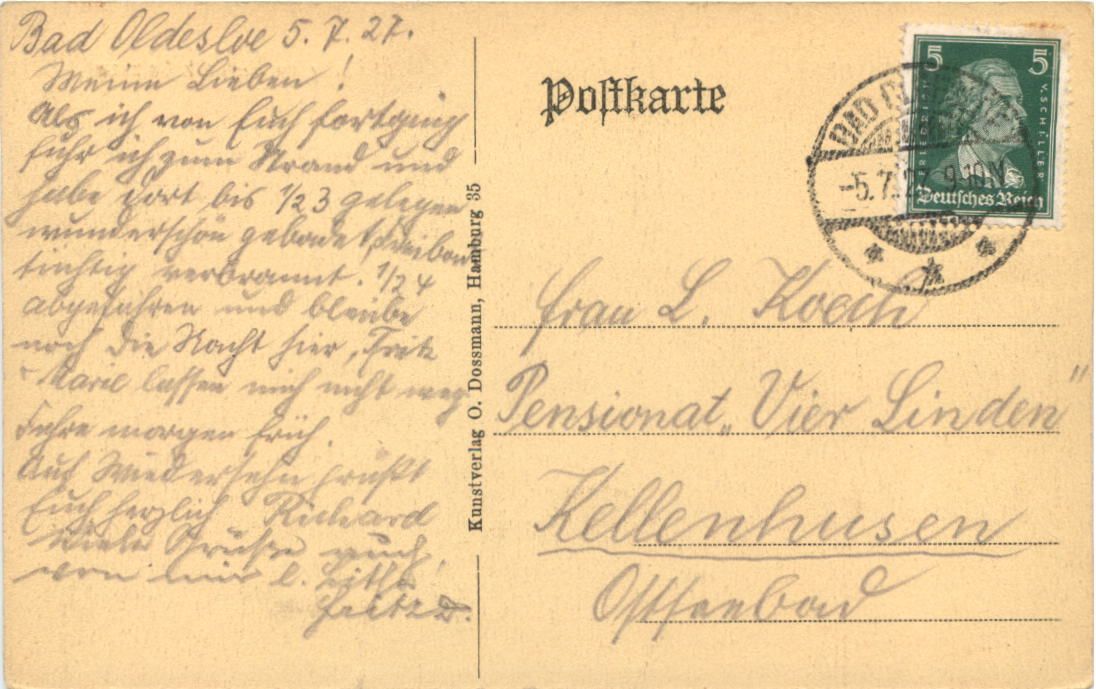 Bad Oldesloe 5.7.27.
Meine Lieben!
Als ich von Euch fortging
fuhr ich zum Strand und
habe dort bis 1/2 3 gelegen
wunderschön gebadet,
tüchtig verbrannt. 1/2 4
abgefahren und bleibe
noch die Nacht hier, Fritz
Marie lassen mich nicht weg
Fahre morgen früh.
Auf Wiedersehn grüßt
Euch herzlich Richard
Viele Grüße auch
von mir
Postkarte
Kunstverlag O. Dossmann, Hamburg 35
5 5
V. SCHILLER
Deutsches Reich
BAD
-5.7.27. 9-10 N
Frau L. Koch
Pensionat „Vier Linden"
Kellenhusen
Ostseebad